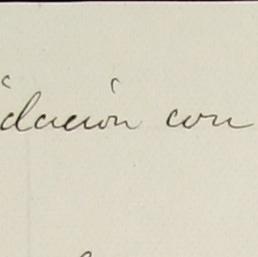 idación con